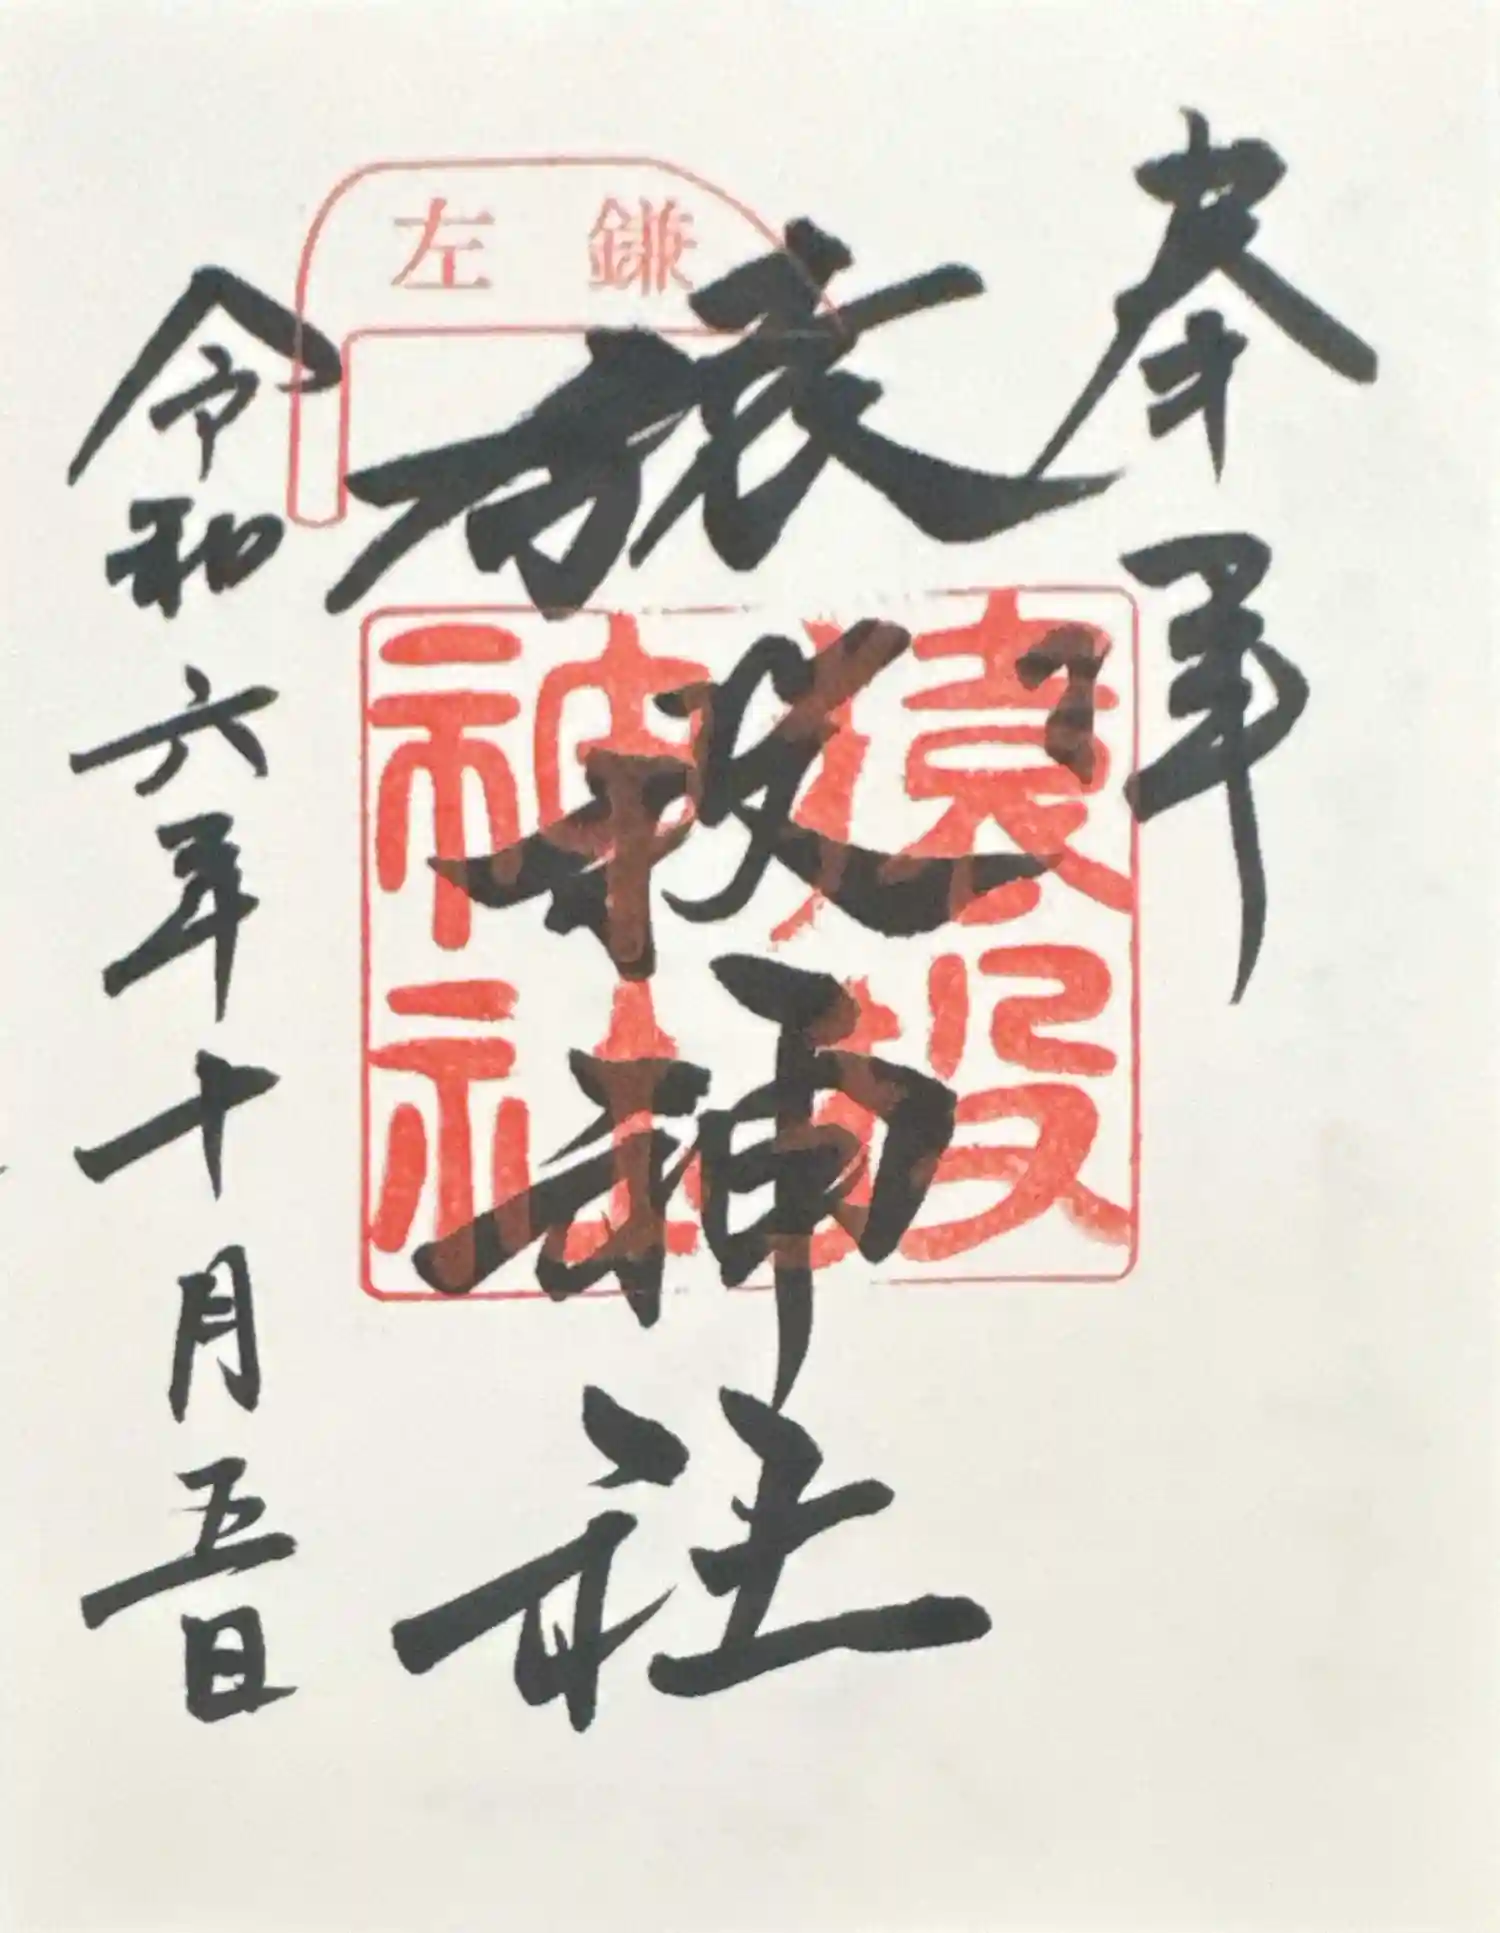 奉拝
猿投神社
令和六年十月五日
左鎌
猿投
神社